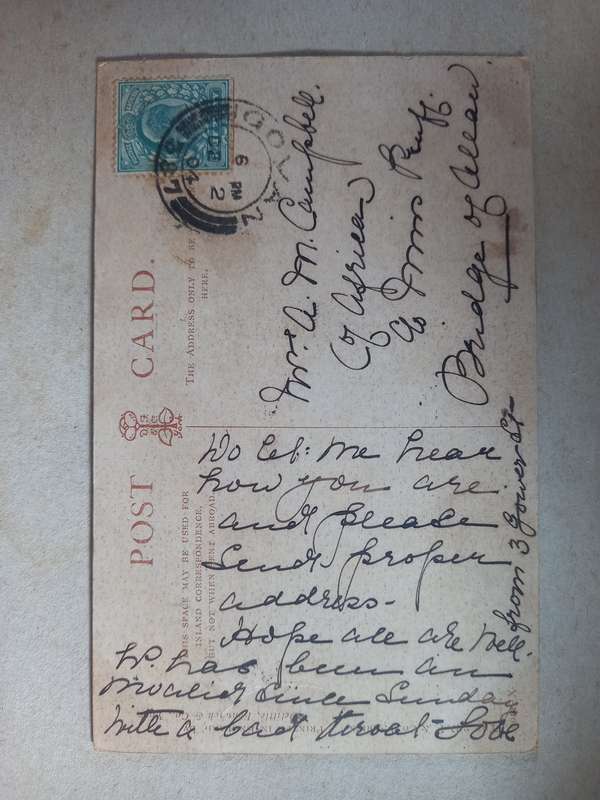 POST CARD.
THIS SPACE MAY BE USED FOR
INLAND CORRESPONDENCE,
BUT NOT WHEN SENT ABROAD.
THE ADDRESS ONLY TO BE
HERE.
6 PM
2
04
Mrs A. M. Campbell.
of African
c/o Miss
Bridge of Allan
Do let me hear
how you are
and please
send proper
address-
Hope all are well.
W. has been an
invalid since Sunday
with a bad throat- Love
from 3 Gower St-